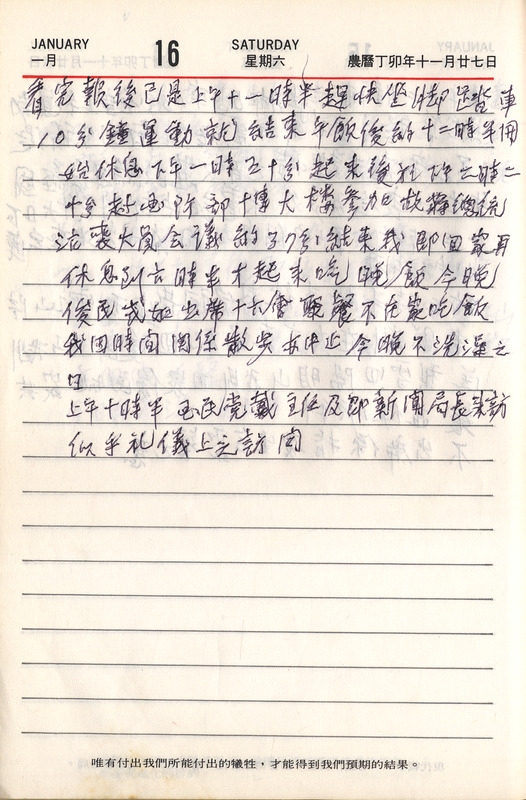 JANUARY 16 SATURDAY
一月 星期六 農曆丁卯年十一月廿七日
看完報後已是上午十一時半趕快坐腳踏車
10分鐘運動就結束午飯後的十二時半開
始休息下午一時五十分起來後在下午二時二
十分赴 介壽館 參加故蔣總統
治喪大員会議的37分結束我即回家再
休息到六時半才起來吃晚飯今晚
俊民成如出席十六會聚餐不在家吃飯
我因時間関係散步中止今晚不洗澡之
日
上午十時半 国民党戴主任及邵新聞局長來訪
似乎礼儀上之訪問
唯有付出我們所能付出的犧牲，才能得到我們預期的結果。